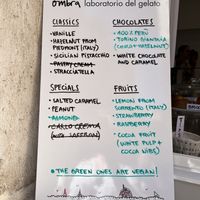 ombra
laboratorio del gelato
CLASSICS
• VANILLE
• HAZELNUT FROM
PIEDMONT (ITALY)
• SICILIAN PISTACCHIO
• PASTRY CREAM
• STRACCIATELLA
CHOCOLATES
• 100% PERÙ
• TORINO GIANDUIA
(COCOA + HAZELNUT)
• WHITE CHOCOLATE
AND CARAMEL
SPECIALS
• SALTED CARAMEL
• PEANUT
• ALMOND
• CARLO CREMA
(WITH SAFFRON)
FRUITS
• LEMON FROM
SORRENTO (ITALY)
• STRAWBERRY
• RASPBERRY
• COCOA FRUIT
(WHITE PULP +
COCOA NIBS)
• THE GREEN ONES ARE VEGAN!